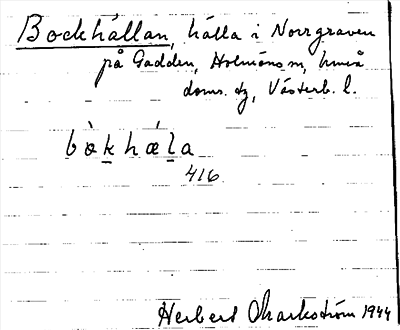 Bockhällan, hälla i Norrgraven
på Gadden, Holmöns sn, Umeå
doms. tg, Västerb. l.
bòkhæ´la
416
Herbert Markström 1944